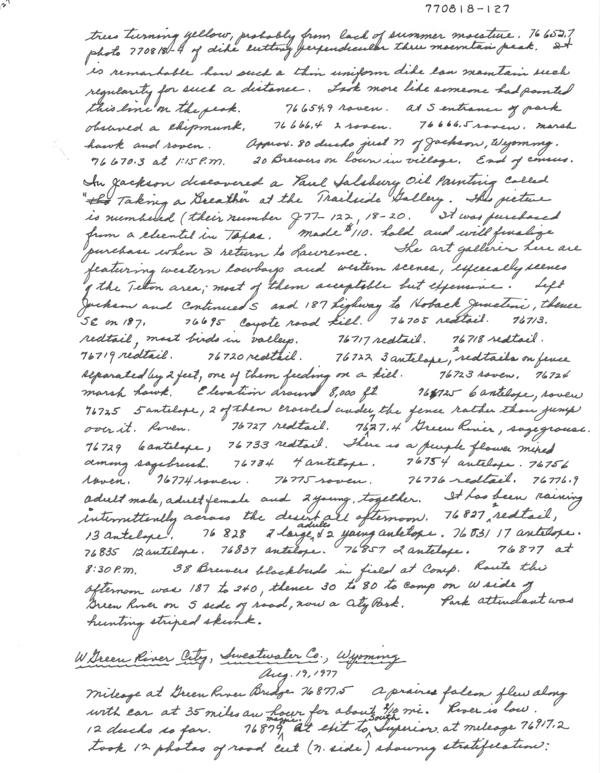 770818-127
trees turning yellow, probably from lack of summer moisture. 76652.7
photo 770818-9 of dike cutting perpendicular thru mountain peak. It
is remarkable how such a thin uniform dike can maintain such
regularity for such a distance. Look more like someone had painted
this line on the peak. 76654.9 raven. At S entrance of park
observed a chipmunk. 76666.4 2 raven. 76666.5 raven. marsh
hawk and raven. Approx. 80 ducks just N of Jackson, Wyoming.
76670.3 at 1:15 P.M. 20 Brewers on lawn in village. End of census.
In Jackson discovered a Paul Salsbury Oil Painting called
"Taking a Breather" at the Trailside Gallery. This picture
is numbered (their number J77-122, 18-20. It was purchased
from a clientel in Texas. Made $110. hold and will finalize
purchase when I return to Lawrence. The art galleries here are
featuring western cowboys and western scenes, especially scenes
of the Teton area; most of them acceptable but expensive. Left
Jackson and continued S and 187 highway to Hoback Junction, thence
SE on 187. 76695 Coyote road kill. 76705 redtail. 76713.
redtail, most birds in valley. 76717 redtail. 76718 redtail.
76719 redtail. 76720 redtail. 76722 3 antelope, 2 redtails on fence
separated by 2 feet, one of them feeding on a kill. 76723 raven. 76724
marsh hawk. Elevation around 8,000 ft 76725 6 antelope, raven
76725 5 antelope, 2 of them crawled under the fence rather than jump
over it. Raven. 76727 redtail. 7627.4 Green River, sagegrouse.
76729 6 antelope, 76733 redtail. There is a purple flower mixed
among sagebrush. 76734 4 antelope. 76754 antelope. 76756
raven. 76774 raven. 76775 raven. 76776 redtail. 76776.9
adult male, adult female and 2 young, together. It has been raining
intermittently across the desert all afternoon. 76827 2 redtail,
13 antelope. 76828 2 large adults & 2 young antelope. 76831 17 antelope.
76835 12 antelope. 76837 antelope. 76857 2 antelope. 76877 at
8:30 P.M. 38 Brewers blackbirds in field at Camp. Route this
afternoon was 187 to 240, thence 30 to 80 to camp on W side of
Green River on S side of road, now a City Park. Park attendant was
hunting striped skunk.
W Green River City, Sweatwater Co., Wyoming
Aug. 19, 1977
Mileage at Green River Bridge 76877.5 A prairie falcon flew along
with car at 35 miles an hour for about 2/10 mi. River is low.
12 ducks so far. 76879 magpie. At exit to South Superior, at mileage 76917.2
took 12 photos of road cut (N. side) showing stratification: